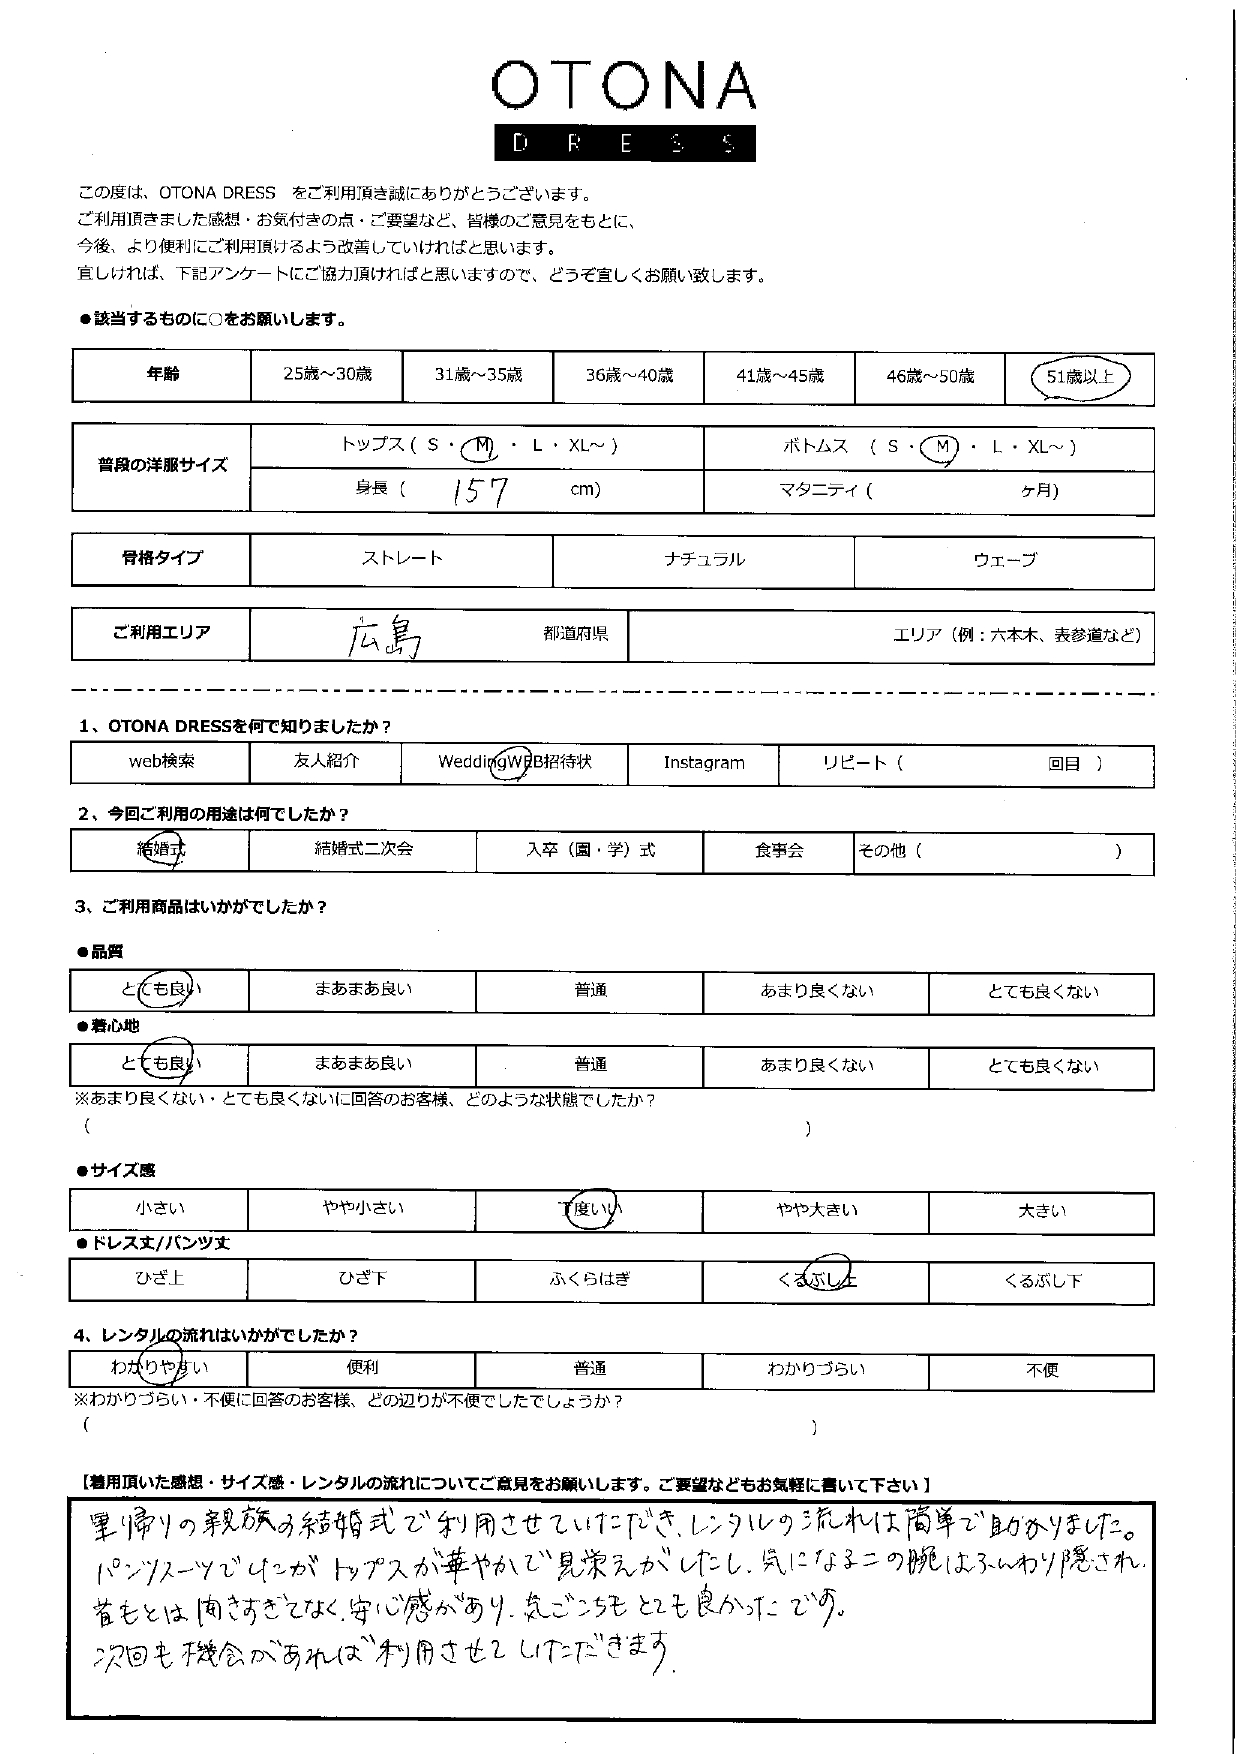 OTONA
DRESS
この度は、OTONA DRESS　をご利用頂き誠にありがとうございます。
ご利用頂きました感想・お気付きの点・ご要望など、皆様のご意見をもとに、
今後、より便利にご利用頂けるよう改善していければと思います。
宜しければ、下記アンケートにご協力頂ければと思いますので、どうぞ宜しくお願い致します。
●該当するものに○をお願いします。
年齢 25歳～30歳 31歳～35歳 36歳～40歳 41歳～45歳 46歳～50歳 51歳以上
普段の洋服サイズ トップス ( S ・ M ・ L ・ XL～ ) ボトムス ( S ・ M ・ L ・ XL～ )
身長 ( 157 cm) マタニティ ( ケ月)
骨格タイプ ストレート ナチュラル ウェーブ
ご利用エリア 広島 都道府県 エリア（例：六本木、表参道など）
1、OTONA DRESSを何で知りましたか？
web検索 友人紹介 WeddingWEB招待状 Instagram リピート ( 回目 )
2、今回ご利用の用途は何でしたか？
結婚式 結婚式二次会 入卒（園・学）式 食事会 その他 ( )
3、ご利用商品はいかがでしたか？
●品質
とても良い まあまあ良い 普通 あまり良くない とても良くない
●着心地
とても良い まあまあ良い 普通 あまり良くない とても良くない
※あまり良くない・とても良くないに回答のお客様、どのような状態でしたか？
( )
●サイズ感
小さい やや小さい 丁度いい やや大きい 大きい
●ドレス丈/パンツ丈
ひざ上 ひざ下 ふくらはぎ くるぶし上 くるぶし下
4、レンタルの流れはいかがでしたか？
わかりやすい 便利 普通 わかりづらい 不便
※わかりづらい・不便に回答のお客様、どの辺りが不便でしたでしょうか？
( )
【着用頂いた感想・サイズ感・レンタルの流れについてご意見をお願いします。ご要望などもお気軽に書いて下さい】
里帰りの親族の結婚式で利用させていただき、レンタルの流れは簡単で助かりました。
パンツスーツでしたがトップスが華やかで見栄えがしたし、気になる二の腕はふんわり隠され、
首もとは開きすぎてなく、安心感があり、気ごこちもとても良かったです。
次回も機会があれば利用させていただきます.